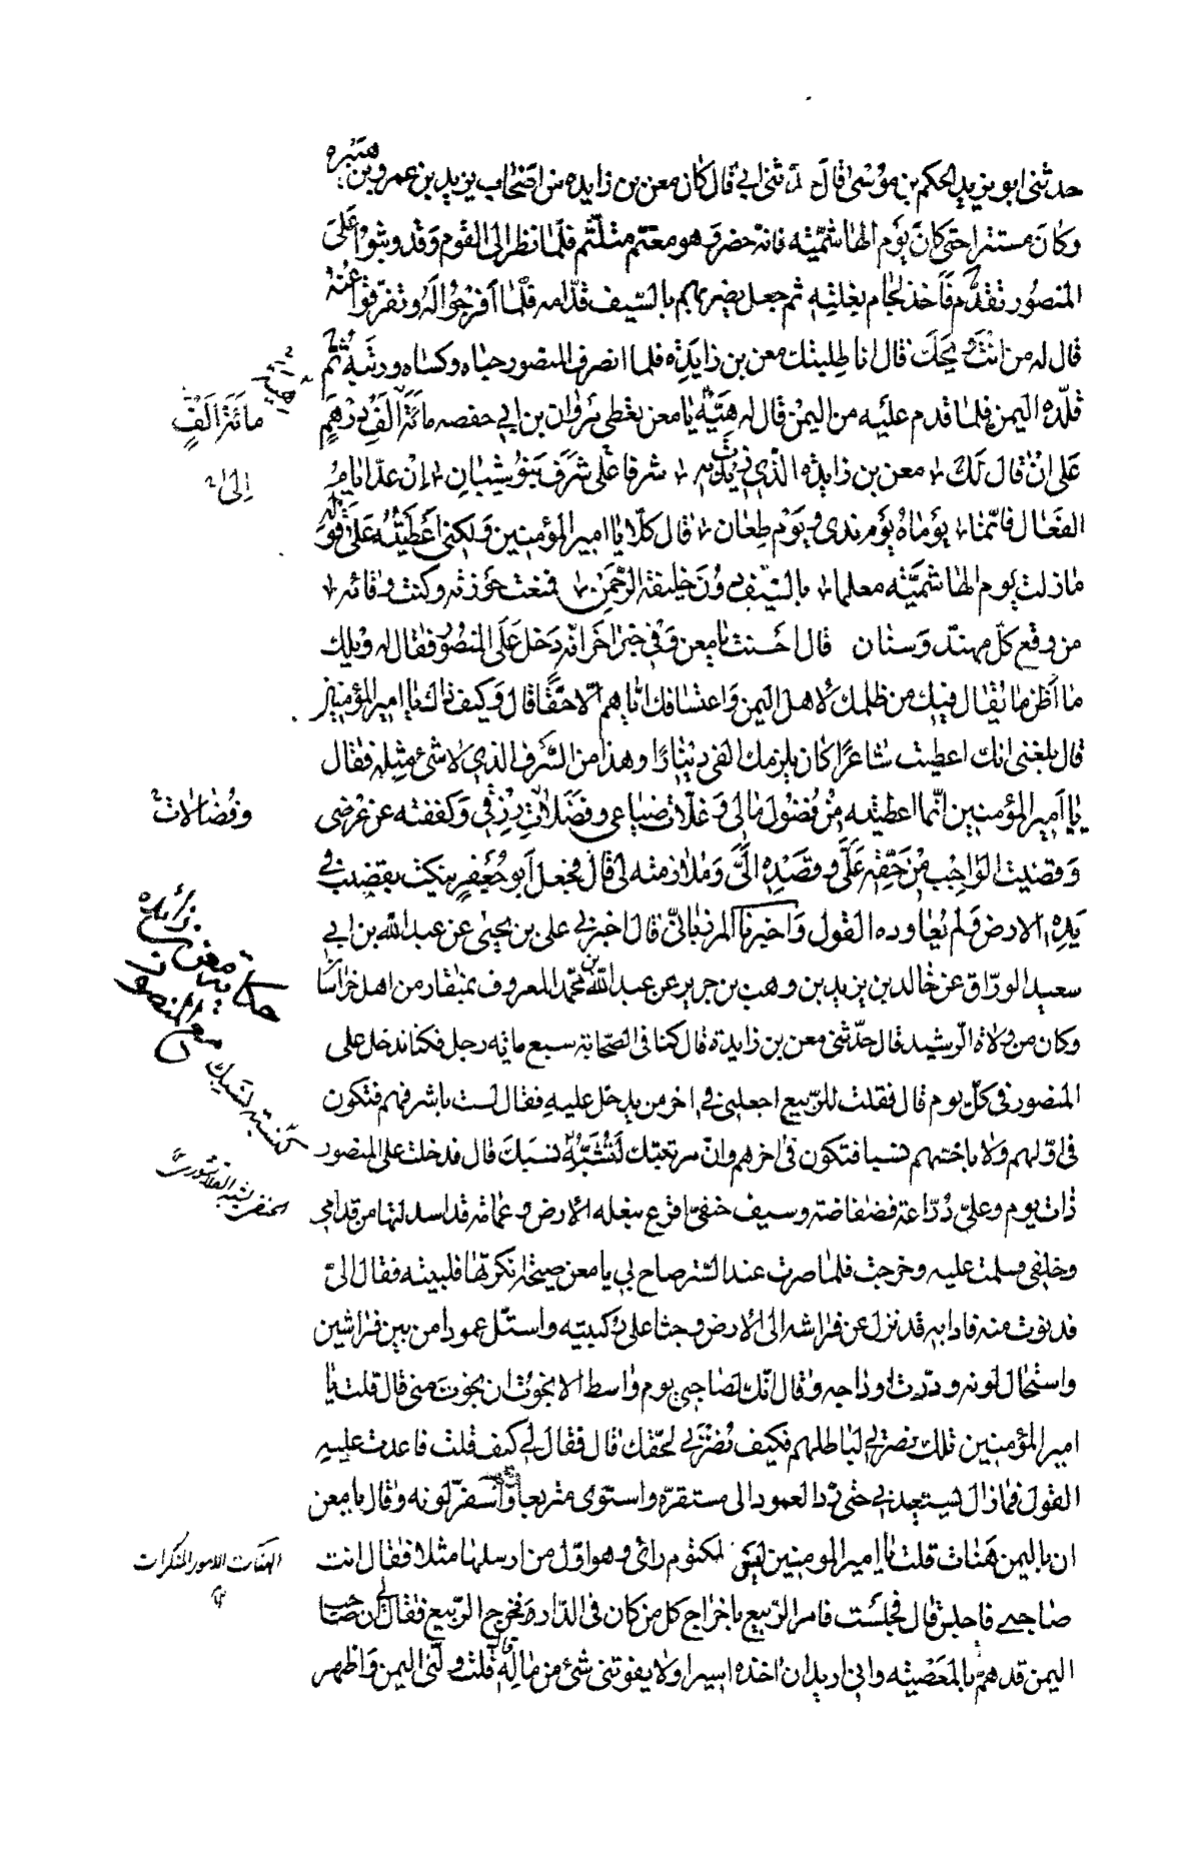 حدثنی ابو یزید الحکم بن موسی قال حدثنی ابی قال کان معن بن زایده من اصحاب یزید بن عمرو بن هبیره
وکان مستترا حتی کان یوم الهاشمیّه فانه حضر وهو معتم متلثّم فلما نظر الی القوم وقد وثبوا علی
المنصور تقدّم فاخذ بلجام بغلته ثم جعل یضربهم بالسّیف قدّامه فلما افرجوا له وتفرقوا عنه
قال له من انت ویحک قال انا طلبتک معن بن زایده فلما انصرف المنصور حباه وکساه ورتبه ثم
قلّده الیمن فلما قدم علیه من الیمن قال له هیه یا معن تعطی مروان بن ابی حفصه مائة الف درهم
مائة الف
علی ان قال لک معن بن زایدة الذی زیدت به شرفا علی شرف بنو شیبان ان عدّ ایام
الی
الفعال فانّما یوماه یوم ندی ویوم طعان قال کلا یا امیر المؤمنین ولکنی اعطیته علی قوله
ما زلت یوم الهاشمیّة معلما بالسیف دون خلیفة الرحمن فمنعت حوزته وکنت وقائه
من وقع کل مهنّد وسنان قال احسنت یا معن وفی خبر اخر انه دخل علی المنصور فقال له ویلک
ما اظن ما یقال فیک من ظلمک لاهل الیمن واعتسافک ایاهم الا حقا قال وکیف ذلک یا امیر المؤمنین
قال بلغنی انک اعطیت شاعرا کان یلزمک الفی دینارا وهذا من السّرف الذی لا شئ مثله فقال
یا امیر المؤمنین انّما اعطیته من فضول مالی وغلات ضیاعی وفضلات رزقی وکففته عن عرضی
وفضالات
وقضیت الواجب من حقّه علیّ وقصده الیّ وملازمته لی قال فجعل ابو جعفر ینکت بقضیب فی
یده الارض ولم یعاوده القول واخبرنا المرزبانیّ قال اخبرنی علی بن یحیی عن عبد الله بن ابی
سعید الورّاق عن خالد بن یزید بن وهب بن جریر عن عبد الله بن محمّد المعروف بمنقار من اهل خراسان
حکایة معن بن زائده مع المنصور
وکان من ولاة الرّشید قال حدّثنی معن بن زایدة قال کنا فی الصّحابة سبع مایه رجل فکنا ندخل علی
المنصور فی کلّ یوم قال فقلت للرّبیع اجعلنی فی اخر من یدخل علیه فقال لست باشرفهم فتکون
فی اوّلهم ولا باخسّهم نسبا فتکون فی اخرهم وانّ مرتبتک لتشبه نسبک قال فدخلت علی المنصور
کنسبة نسبک
ذات یوم وعلیّ درّاعة فضفاضة وسیف حنفیّ اقرع بنعله الارض وعمامة قد اسدلتها من قدامی
وخلفی فسلمت علیه وخرجت فلما صرت عند الستر صاح بی یا معن صیحة انکرتها فلبیته فقال الیّ
فدنوت منه فاذا به قد نزل عن فراشه الی الارض وجثا علی رکبتیه واستل عمودا من بین فراشین
واستحال لونه ودرّت اوداجه وقال انّک لصاحبی یوم واسط لا نجوت ان نجوت منی قال قلت یا
امیر المؤمنین تلک نصرتی لباطلهم فکیف نصرتی لحقّک قال فقال لی کیف قلت فاعدت علیه
القول فما زال یستعیدنی حتی ردّ العمود الی مستقرّه واستوی متربعا واسفرّ لونه وقال یا معن
ان بالیمن هنات قلت یا امیر المومنین لیس لمکتوم رائ وهو اوّل من ارسلها مثلا فقال انت
الهنات الامور المنکرات
صاحبی فاجلس قال فجلست فامر الرّبیع باخراج کل من کان فی الدّار وخرج الرّبیع فقال لی ان صاحب
الیمن قد همّ بالمعصیّه وانی ارید ان اخذه اسیرا ولا یفوتنی شئ من ماله قلت ولّنی الیمن واظهر